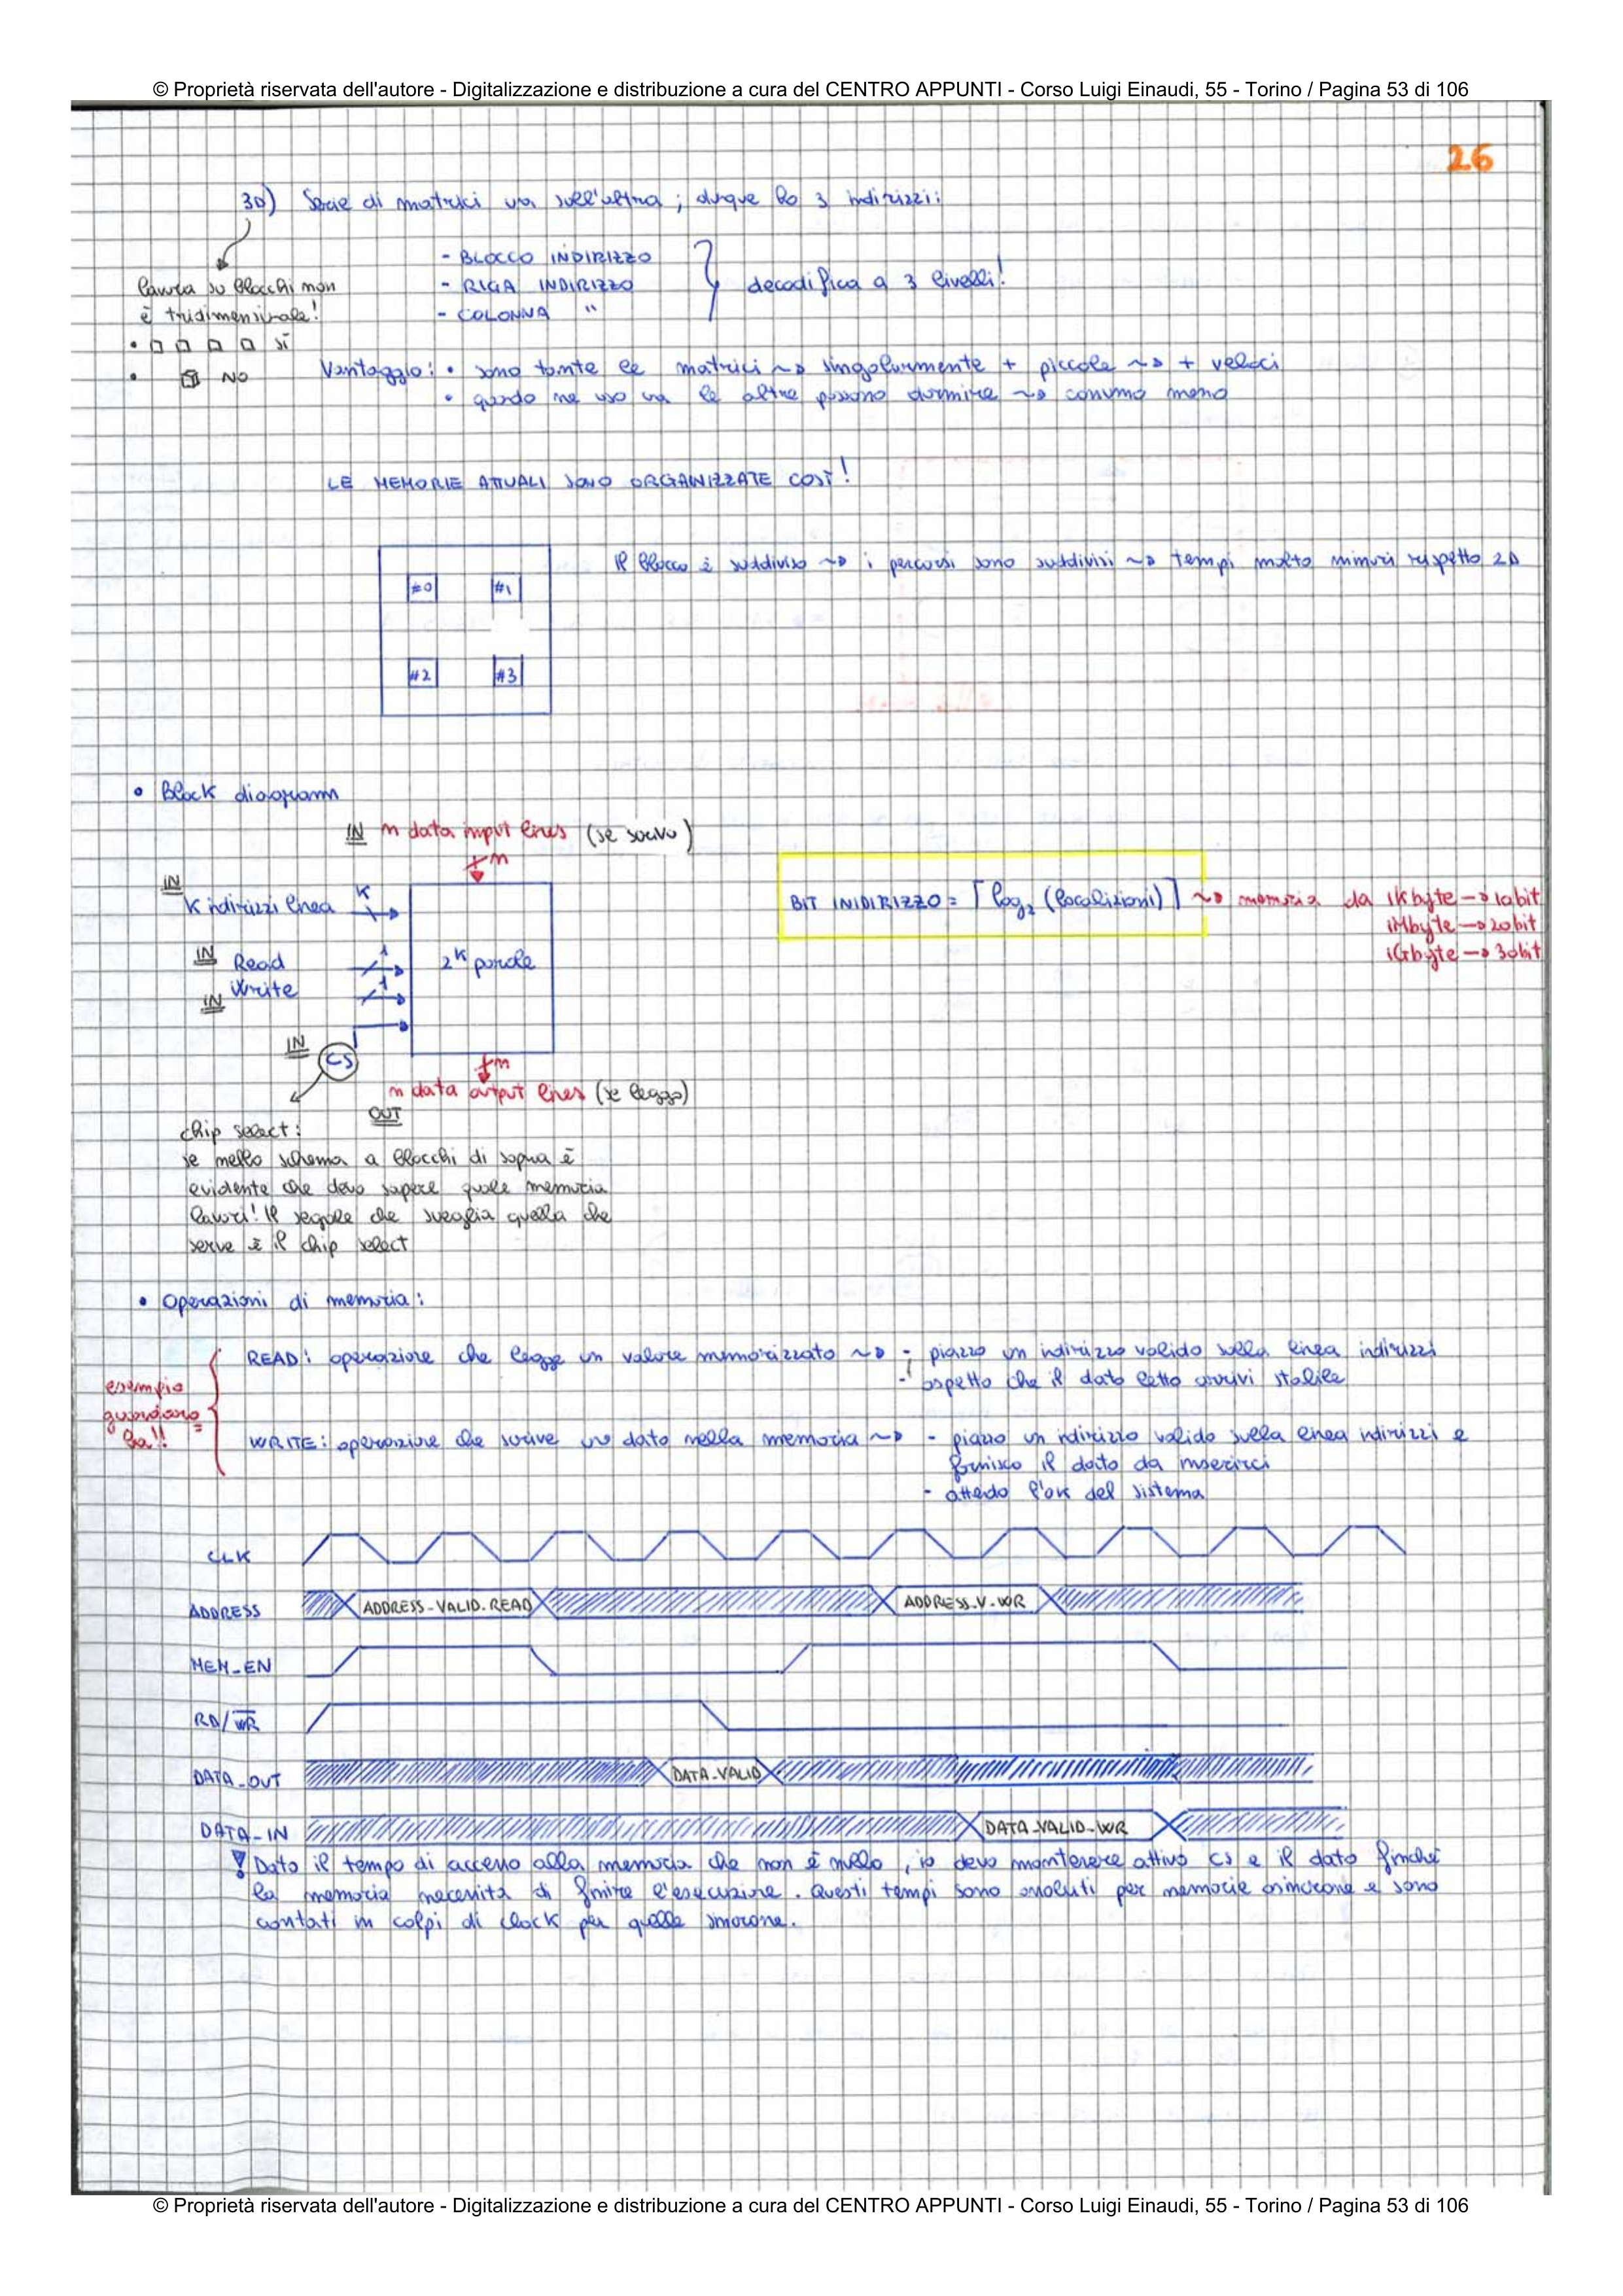 © Proprietà riservata dell'autore - Digitalizzazione e distribuzione a cura del CENTRO APPUNTI - Corso Luigi Einaudi, 55 - Torino / Pagina 53 di 106
26
3D) Serie di matrici una sull'altra ; dunque ho 3 indirizzi:
- BLOCCO INDIRIZZO
- RIGA INDIRIZZO
- COLONNA "
decodifica a 3 livelli!
lavora su blocchi non
è tridimensionale!
• □ □ □ □ SÌ
• NO
Vantaggio: • sono tante le matrici ~> singolarmente + piccole ~> + veloci
• quando ne uso una le altre possono dormire ~> consumo meno
LE MEMORIE ATTUALI SONO ORGANIZZATE COSÌ!
il blocco è suddiviso ~> i percorsi sono suddivisi ~> tempi molto minori rispetto 2D
#0 #1
#2 #3
• Block diagram
IN n data input lines (se scrivo)
n
IN
K indirizzi linea K
IN Read 1
IN Write 1
2^K parole
IN
CS
n
n data output lines (se leggo)
OUT
BIT INIDIRIZZO = ⌈log₂ (localizzioni)⌉ ~> memoria da 1Kbyte -> 10bit
1Mbyte -> 20bit
1Gbyte -> 30bit
chip select:
se nello schema a blocchi di sopra è
evidente che devo sapere quale memoria
lavori! Il segnale che sveglia quella che
serve è il chip select
• Operazioni di memoria:
esempio
guardare
ba!!
READ: operazione che legge un valore memorizzato ~> - piazzo un indirizzo valido sulla linea indirizzi
- aspetto che il dato letto arrivi stabile
WRITE: operazione che scrive un dato nella memoria ~> - piazzo un indirizzo valido sulla linea indirizzi e
fornisco il dato da inserirci
- attendo l'ok del sistema
CLK
ADDRESS ADDRESS-VALID-READ ADDRESS-V-WR
MEM_EN
RD/W̅R̅
DATA_OUT DATA-VALID
DATA-IN DATA-VALID-WR
! Dato il tempo di accesso alla memoria che non è nullo, io devo mantenere attivo CS e il dato finché
la memoria necessita di finire l'esecuzione. Questi tempi sono assoluti per memorie asincrone e sono
contati in colpi di clock per quelle sincrone.
© Proprietà riservata dell'autore - Digitalizzazione e distribuzione a cura del CENTRO APPUNTI - Corso Luigi Einaudi, 55 - Torino / Pagina 53 di 106